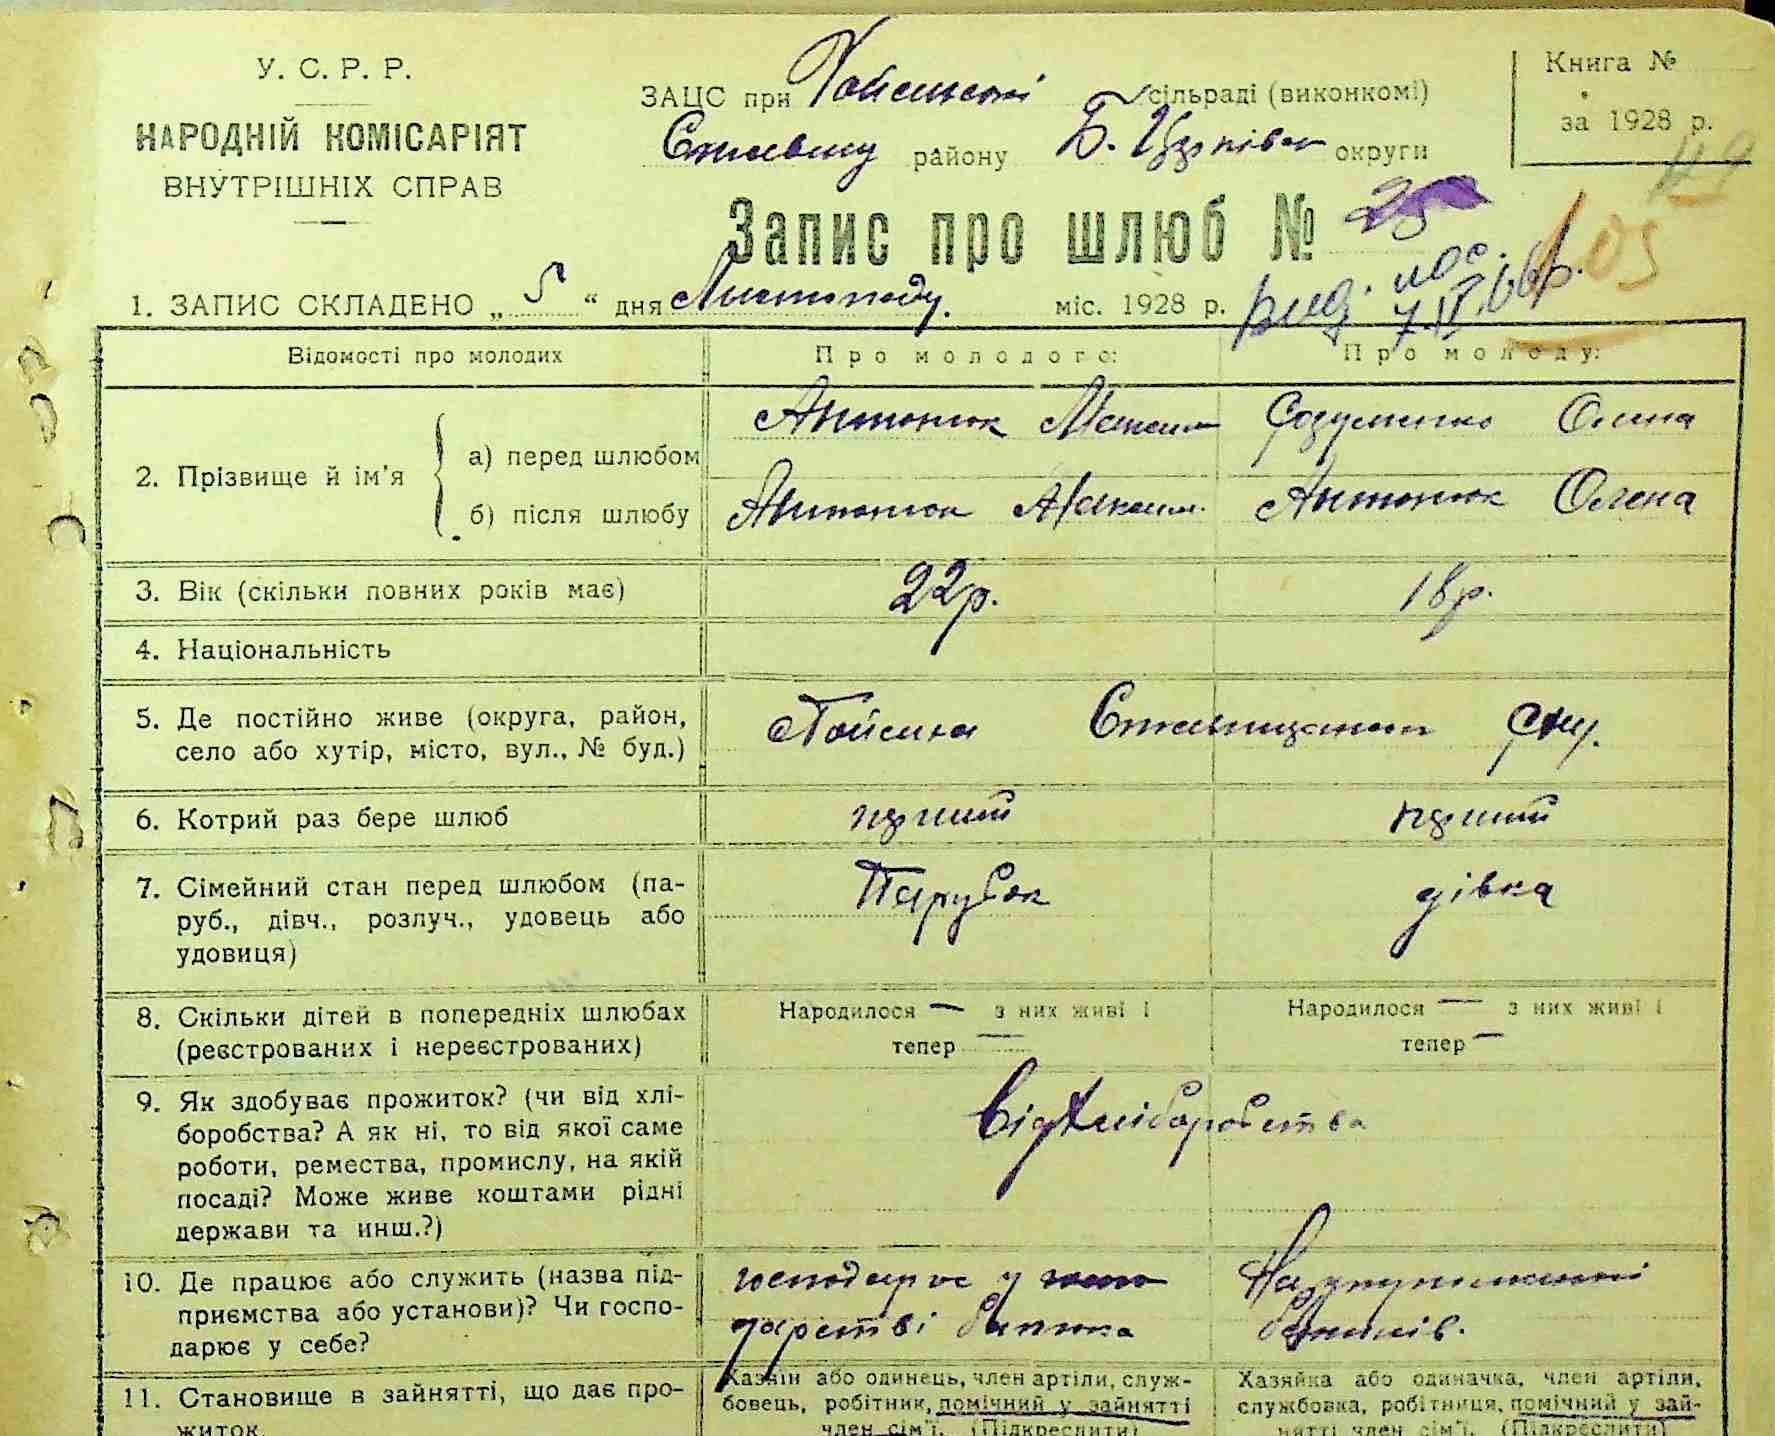 У. С. Р. Р.
НАРОДНІЙ КОМІСАРІЯТ
ВНУТРІШНІХ СПРАВ
ЗАЦС при Тойсинській сільраді (виконкомі)
району Б. Церківськ округи
Книга №
за 1928 р.
Запис про шлюб № 25
105
вид. пас. 7.IV.66р.
1. ЗАПИС СКЛАДЕНО „ 5 “ дня Листопаду. міс. 1928 р.
Відомості про молодих Про молодого: Про молоду:
2. Прізвище й ім'я
а) перед шлюбом Антонюк Максим Розуменко Олена
б) після шлюбу Антонюк Максим Антонюк Олена
3. Вік (скільки повних років має) 22р. 18р.
4. Національність
5. Де постійно живе (округа, район,
село або хутір, місто, вул., № буд.)
6. Котрий раз бере шлюб перший перший
7. Сімейний стан перед шлюбом (па-
руб., дівч., розлуч., удовець або
удовиця)
Парубок дівка
8. Скільки дітей в попередніх шлюбах
(реєстрованих і нереєстрованих)
Народилося — з них живі і
тепер —
Народилося — з них живі і
тепер —
9. Як здобуває прожиток? (чи від хлі-
боробства? А як ні, то від якої саме
роботи, ремества, промислу, на якій
посаді? Може живе коштами рідні
держави та инш.?)
Від Хліборобства
10. Де працює або служить (назва під-
приємства або установи)? Чи госпо-
дарює у себе?
господарює у госпо
дарстві батька
На утриманні
батьків.
11. Становище в зайнятті, що дає про-
житок.
Хазяїн або одинець, член артіли, служ-
бовець, робітник, помічний у зайнятті
член сім'ї. (Підкреслити)
Хазяйка або одиначка, член артіли,
службовка, робітниця, помічний у зай-
нятті член сім'ї. (Підкреслити)